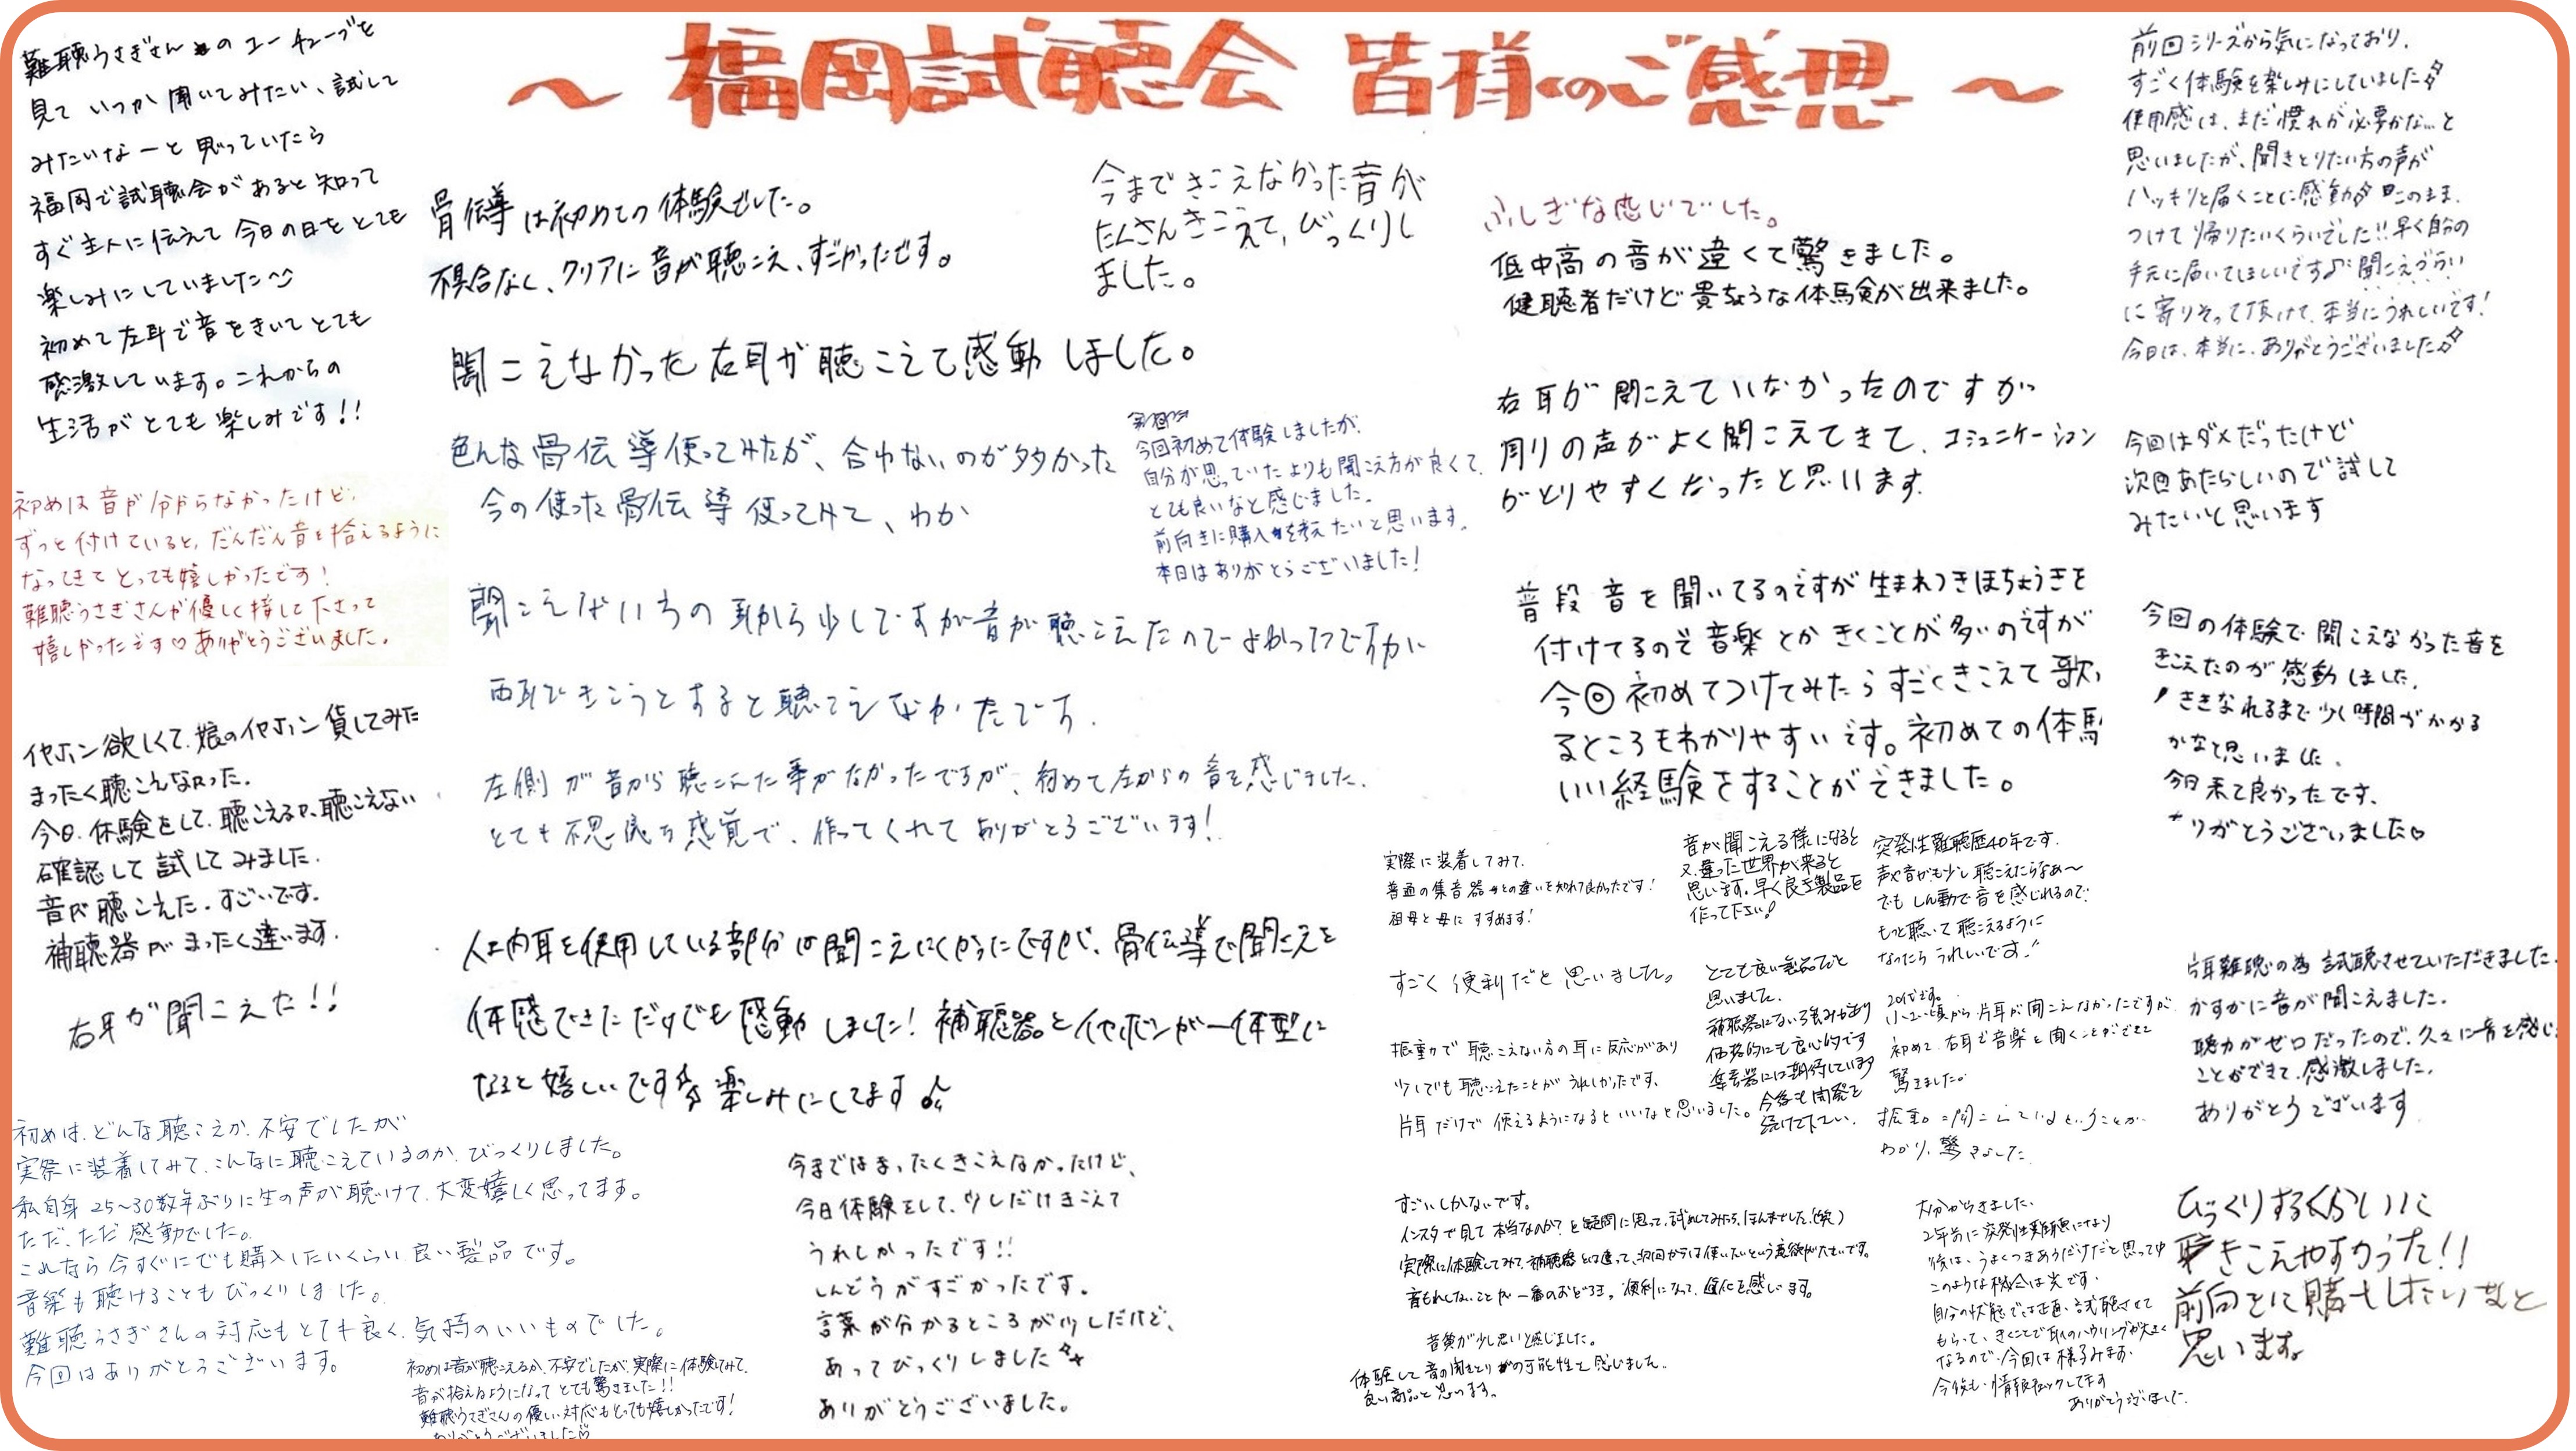 ～福岡試聴会 皆様のご感想～
難聴うさぎさんのユーチューブを
見て いつか聞いてみたい、試して
みたいなーと思っていたら
福岡で試聴会があると知って
すぐ主人に伝えて今日の日をとても
楽しみにしていました
初めて左耳で音をきいてとても
感激しています。これからの
生活がとても楽しみです!!
初めは音が分からなかったけど、
ずっと付けていると、だんだん音を拾えるように
なってきてとっても嬉しかったです!
難聴うさぎさんが優しく接して下さって
嬉しかったです♡ありがとうございました。
イヤホン欲しくて、娘のイヤホン貸してみた
まったく聴こえなかった.
今日、体験をして、聴こえるか、聴こえない
確認して試してみました.
音が聴こえた.すごいです.
補聴器がまったく違います.
右耳が聞こえた!!
初めは、どんな聴こえか、不安でしたが
実際に装着してみて、こんなに聴こえているのか、びっくりしました。
私自身 25～30数年ぶりに生の声が聴けて、大変嬉しく思ってます。
ただ、ただ 感動でした。
これなら今すぐにでも購入したいくらい良い製品です。
音楽も聴けることもびっくりしました。
難聴うさぎさんの対応もとても良く、気持のいいものでした。
今回はありがとうございます。
初めは音が聴こえるか、不安でしたが、実際に体験してみて、
音が拾えるようになってとても驚きました!!
難聴うさぎさんの優しい対応もとっても嬉しかったです!
ありがとうございました♡
骨伝導は初めての体験でした。
不具合なく、クリアに音が聴こえ、すごかったです。
今まできこえなかった音が
たくさんきこえて、びっくりし
ました。
聞こえなかった右耳が聴こえて感動しました。
色んな骨伝導使ってみたが、合わないのが多かった
今の使った骨伝導使ってみて、わか
今回初めて体験しましたが、
自分が思っていたよりも聞こえ方が良くて、
とても良いなと感じました。
前向きに購入を考えたいと思います。
本日はありがとうございました!
聞こえないちの耳から少しですが音が聴こえたので
両耳できこうとすると聴こえなかたです.
左側が昔から聴こえた事がなかったですが、初めて左からの音を感じました.
とても不思議な感覚で、作ってくれてありがとうございます!
人工内耳を使用している部分は聞こえにくかったですが、骨伝導で聞こえを
体感できただけでも感動しました! 補聴器とイヤホンが一体型に
なると嬉しいです 楽しみにしてます♪
今まではまったくきこえなかったけど、
今日体験をして、少しだけきこえて
うれしかったです!!
しんどうがすごかったです。
言葉が分かるところが少しだけど、
あってびっくりしました
ありがとうございました。
ふしぎな感じでした。
低中高の音が違くて驚きました。
健聴者だけど貴ちょうな体験が出来ました。
右耳が聞こえていなかったのですが
周りの声がよく聞こえてきて、コミュニケーション
がとりやすくなったと思います.
普段音を聞いてるのですが生まれつきほちょうきを
付けてるので音楽とかきくことが多いのですが
今回初めてつけてみたらすごくきこえて歌
るところもわかりやすいです。初めての体験
いい経験をすることができました。
実際に装着してみて、
普通の集音器との違いを知れて良かったです!
祖母と母にすすめます!
すごく便利だと思いました。
振動で聴こえない方の耳に反応があり
少しでも聴こえたことがうれしかったです、
片耳だけで使えるようになるといいなと思いました。
音が聞こえる様になると
又、違った世界が来ると
思います。早く良き製品を
作って下さい!
とても良い製品だと
思いました.
補聴器にない強みがあり
価格的にも良心的です
集音器には期待しています
今後も開発を
続けて下さい.
突発性難聴歴40年です.
声や音がも少し聴こえたらなぁ～
でもしん動で音を感じれるので、
もっと聴いて聴こえるように
なったらうれしいです!
20代です。
小1～2頃から片耳が聞こえなかったですが
初めて、右耳で音楽を聞くことができて
驚きました。
わかり、驚きました
すごいしかないです。
インスタで見て本当なのか?と疑問に思って、試めしてみたら、ほんまでした。(笑)
実際に体験してみて、補聴器とは違って、次回からは使いたいという意欲がたかいです。
音もれしないことが一番のおどろき。便利になって、進化を感じます。
音質が少し悪いと感じました。
体験して音の聞きとりの可能性を感じました。
良い商品と思います。
大分からきました.
2年前に突発性難聴になり
後は、うまくつきあうだけだと思ってや
このような機会は光です.
自分の状態では正直、試聴させて
もらって、きくことで耳のハウリングが大きく
なるので、今回は様子みます.
今後も情報チェックしてます
ありがとうございました.
前回シリーズから気になっており、
すごく体験を楽しみにしていました
使用感は、まだ慣れが必要かな…と
思いましたが、聞きとりたい方の声が
ハッキリと届くことに感動 このまま、
つけて帰りたいくらいでした!!早く自分の
手元に届いてほしいです♪聞こえづらい
に寄りそって頂けて、本当にうれしいです!
今日は、本当に、ありがとうございました
今回はダメだったけど
次回あたらしいので試して
みたいと思います
今回の体験で聞こえなかった音を
きこえたのが感動しました.
ききなれるまで少し時間がかかる
かなと思いました、
今日来て良かったです、
りがとうございました♡
片耳難聴の為 試聴させていただきました.
かすかに音が聞こえました.
聴力がゼロだったので、久々に音を感じ
ことができて、感激しました.
ありがとうございます
びっくりするくらいに
きこえやすかった!!
前向きに購入したいなと
思います。